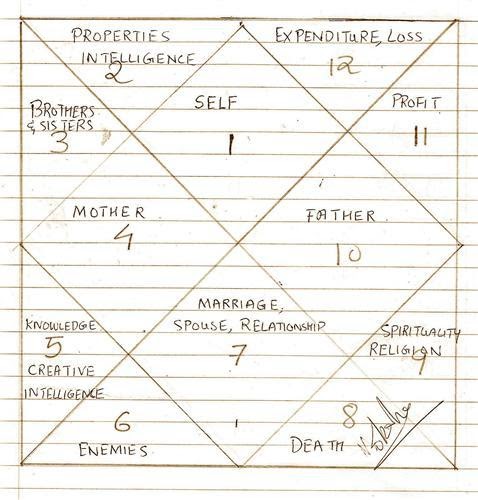 PROPERTIES
INTELLIGENCE
2
EXPENDITURE, LOSS
12
BROTHERS
& SISTERS
3
SELF
1
PROFIT
11
MOTHER
4
FATHER
10
KNOWLEDGE
5
CREATIVE
INTELLIGENCE
MARRIAGE,
SPOUSE, RELATIONSHIP
7
SPIRITUALITY
RELIGION
9
6
ENEMIES
8
DEATH